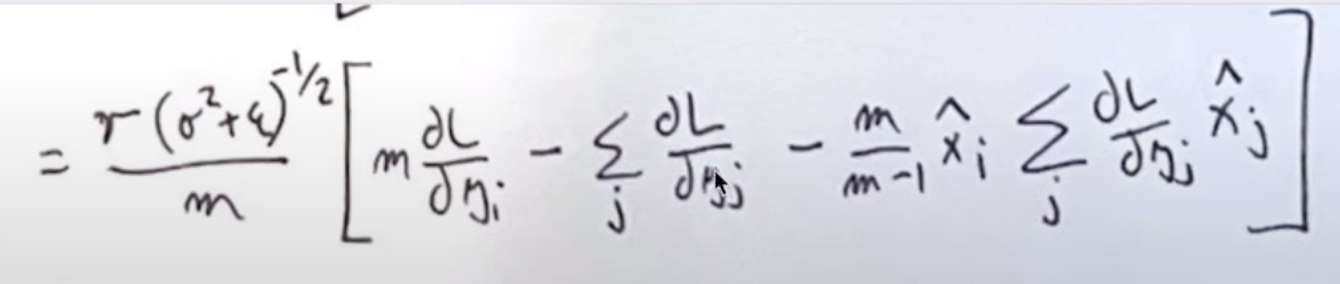 = γ(σ²+ε)^(-1/2) / m [ m ∂L/∂y_i − ∑_j ∂L/∂y_j − m/(m−1) x̂_i ∑_j ∂L/∂y_j x̂_j ]